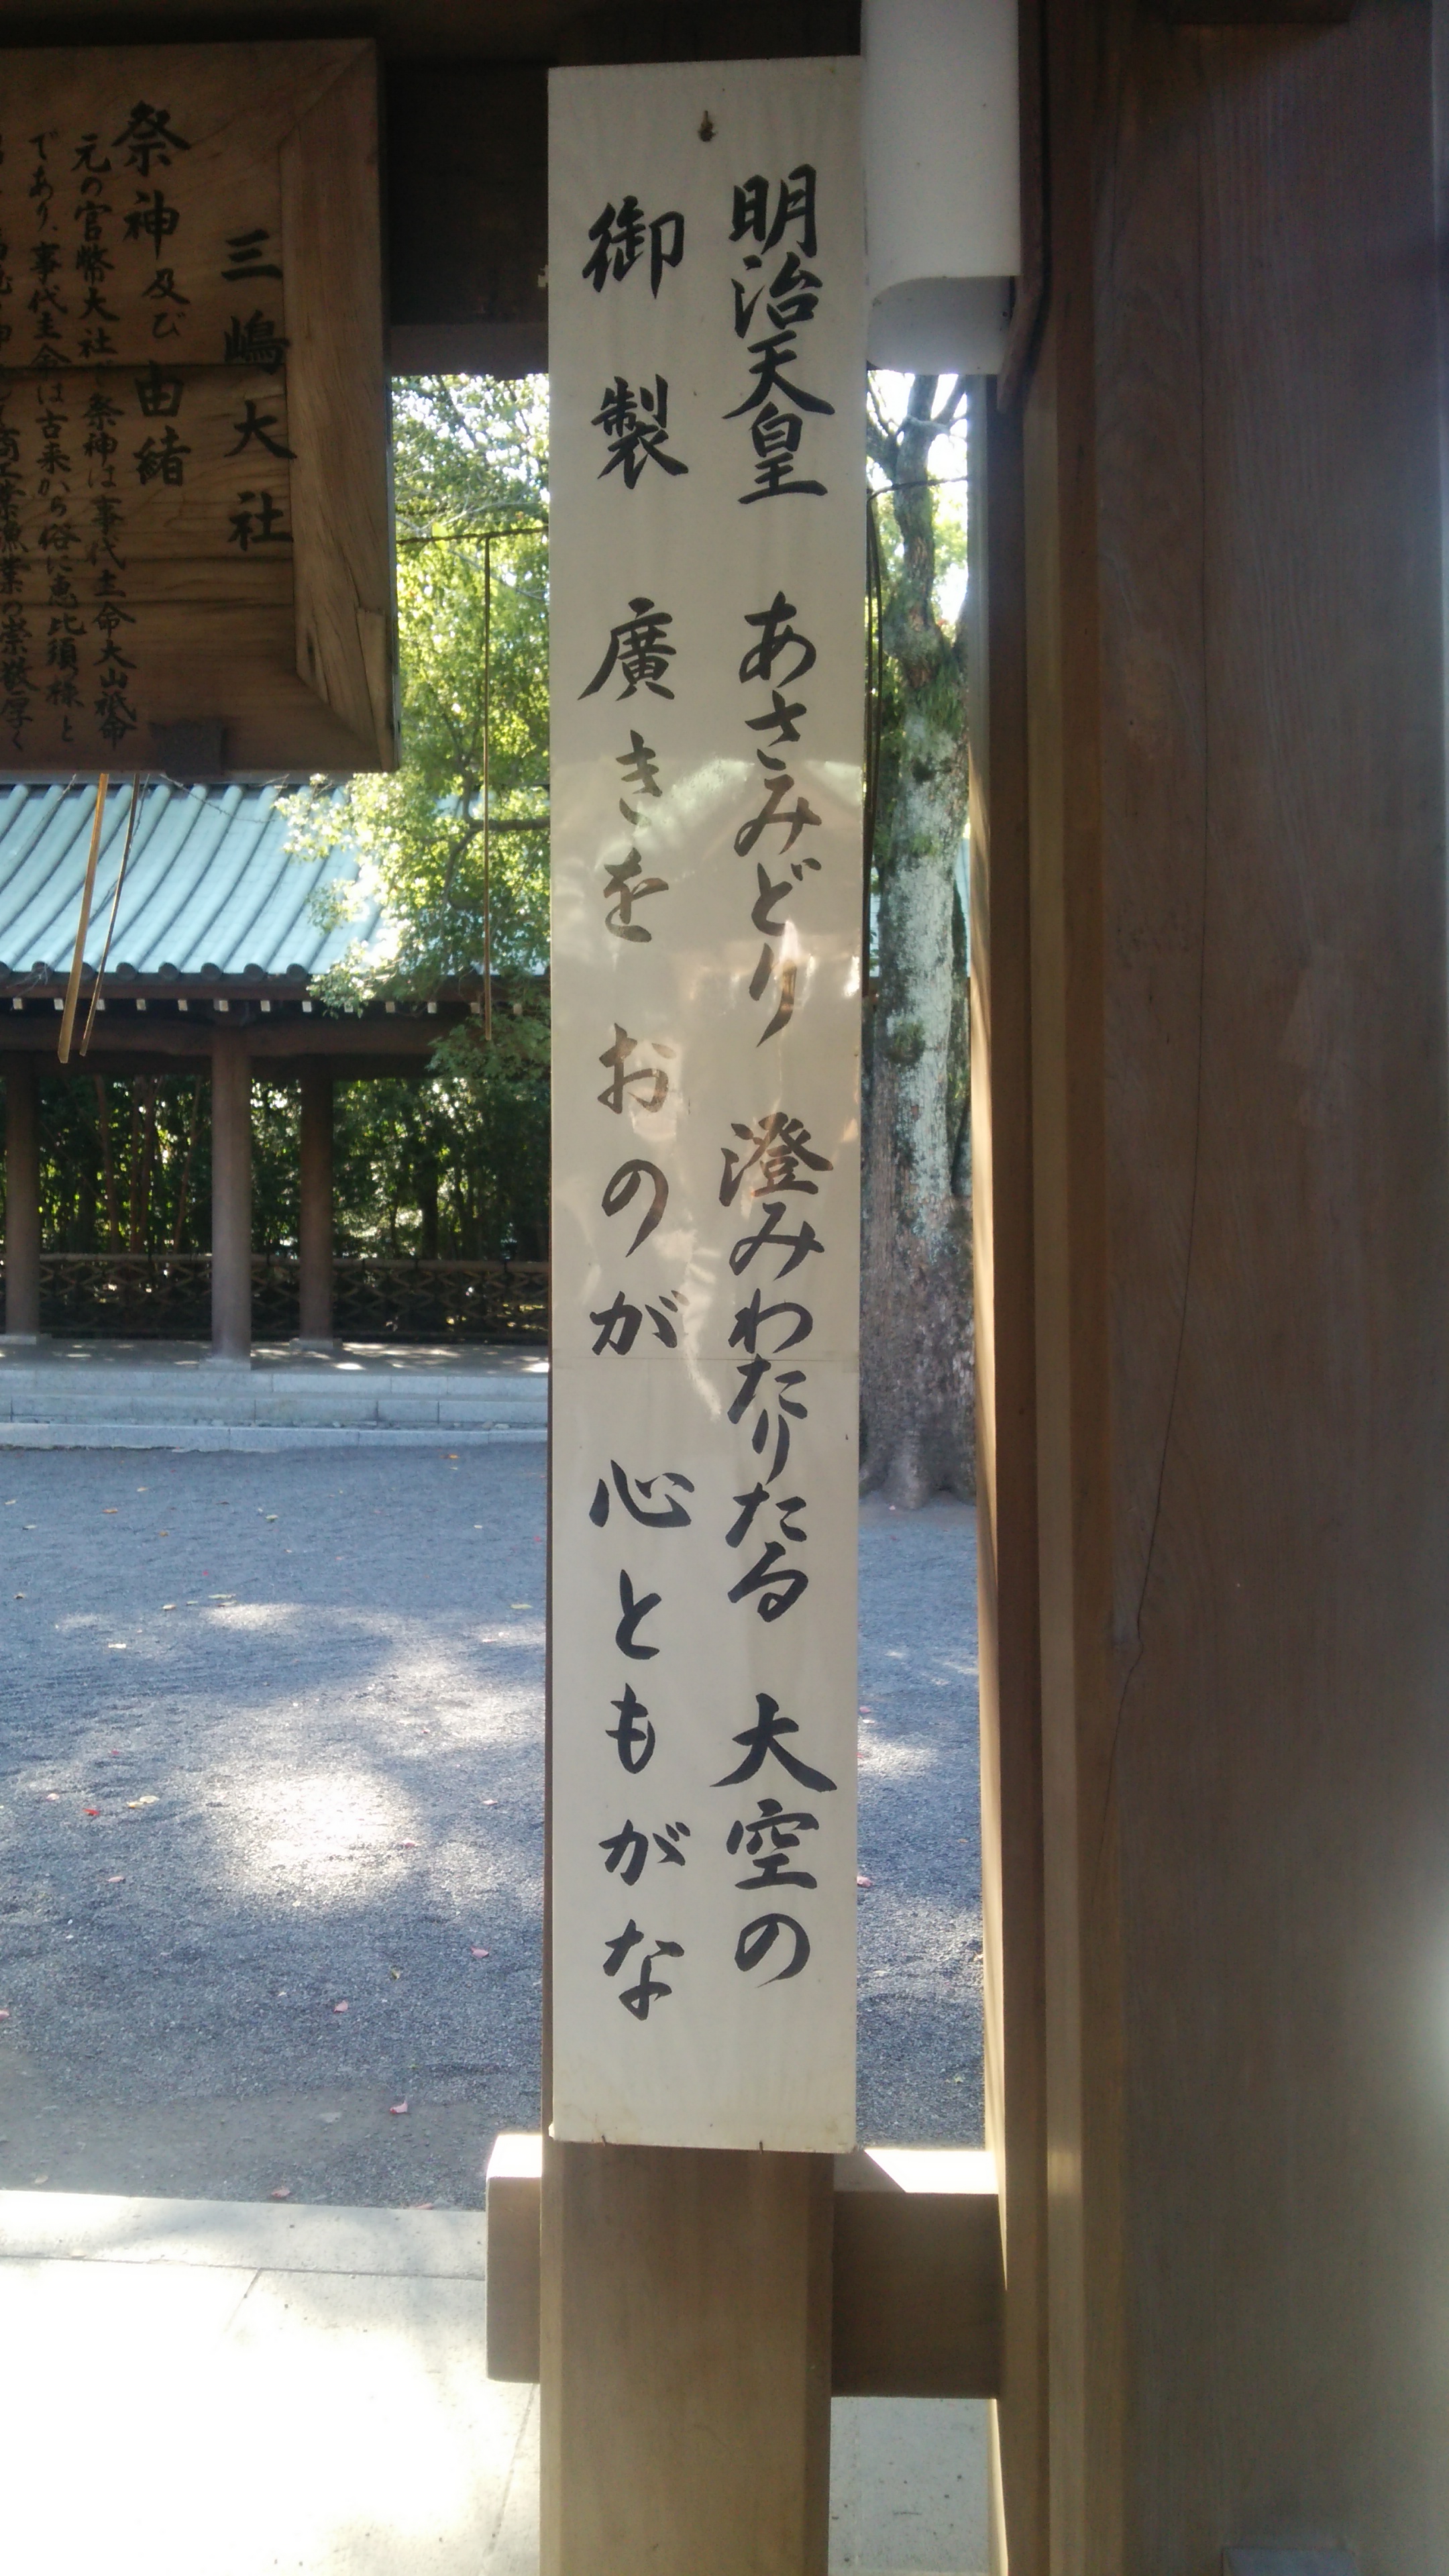 明治天皇 あさみどり 澄みわたりたる 大空の
御製 廣きを おのが 心ともがな
三嶋大社
祭神及び由緒
元の官幣大社で祭神は事代主命大山祇命
であり、事代主命は古来から俗に恵比須様と
商工業漁業の崇敬厚く